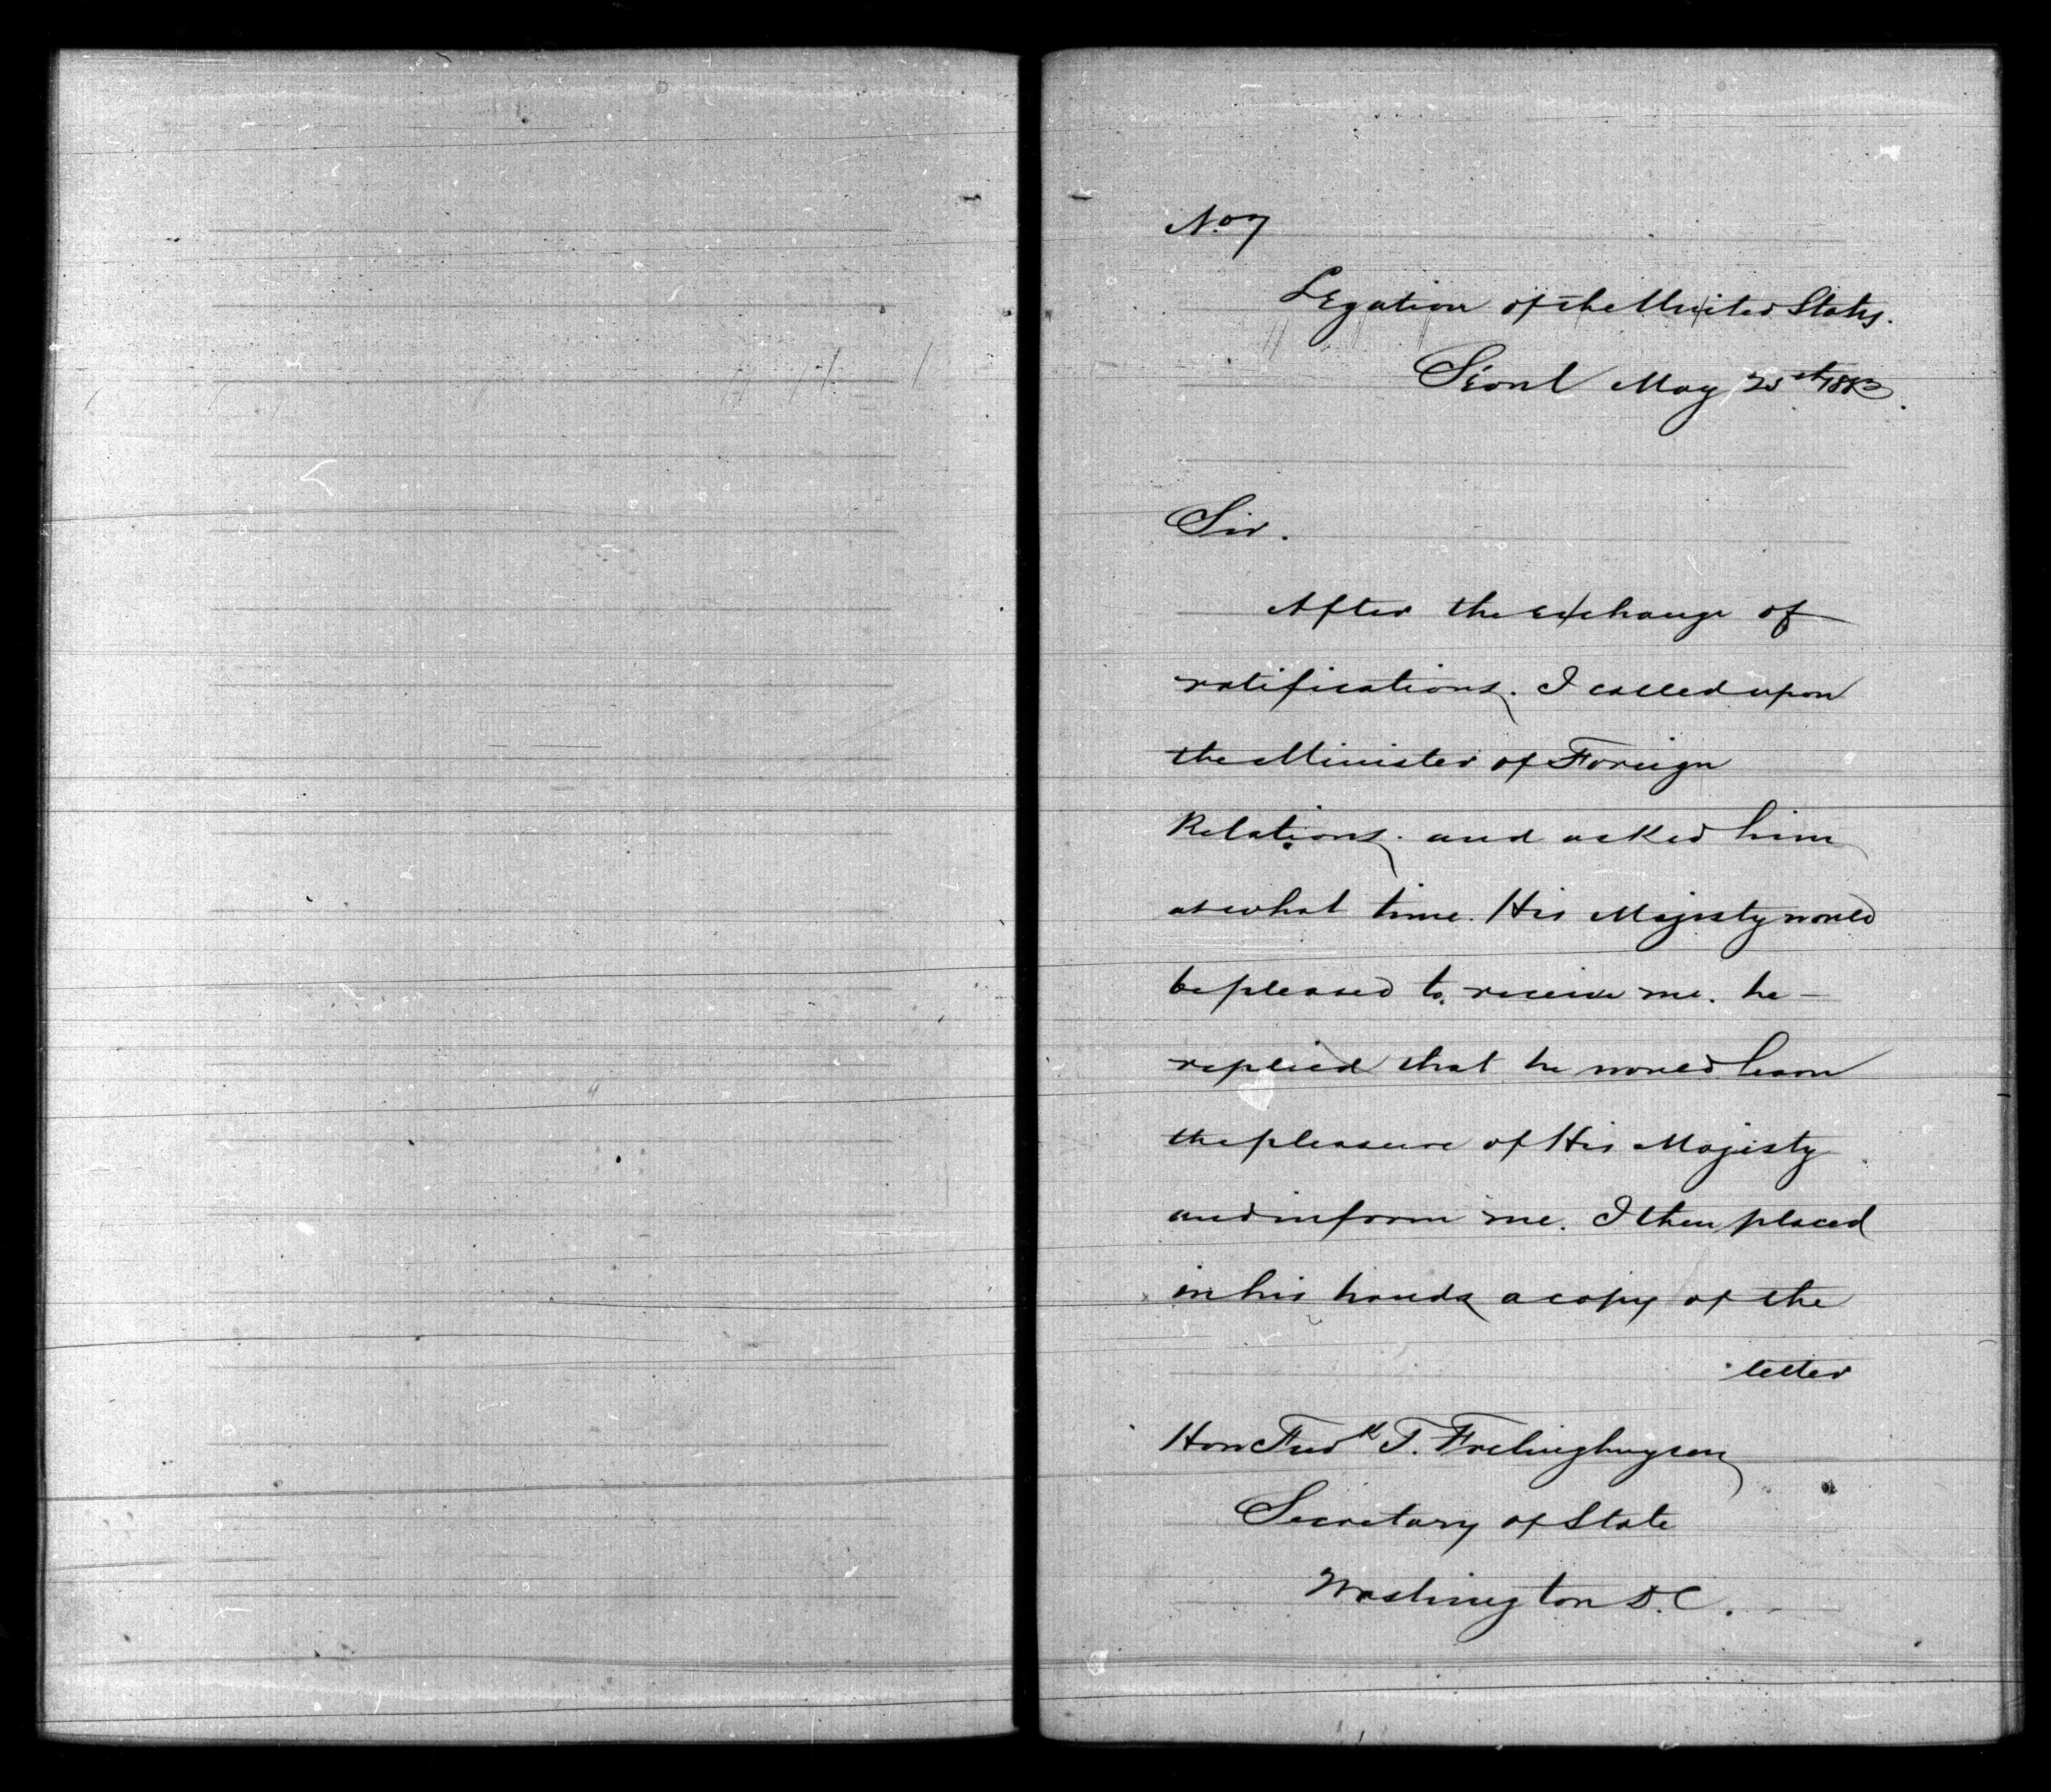 No. 7
Legation of the United States.
Séoul May 25th 1883.
Sir.
After the exchange of
ratifications, I called upon
the Minister of Foreign
Relations, and asked him
at what time His Majesty would
be pleased to receive me. he
replied that he would learn
the pleasure of His Majesty
and inform me. I then placed
in his hands a copy of the
letter
Hon Fredk T. Frelinghuysen
Secretary of State
Washington D.C.